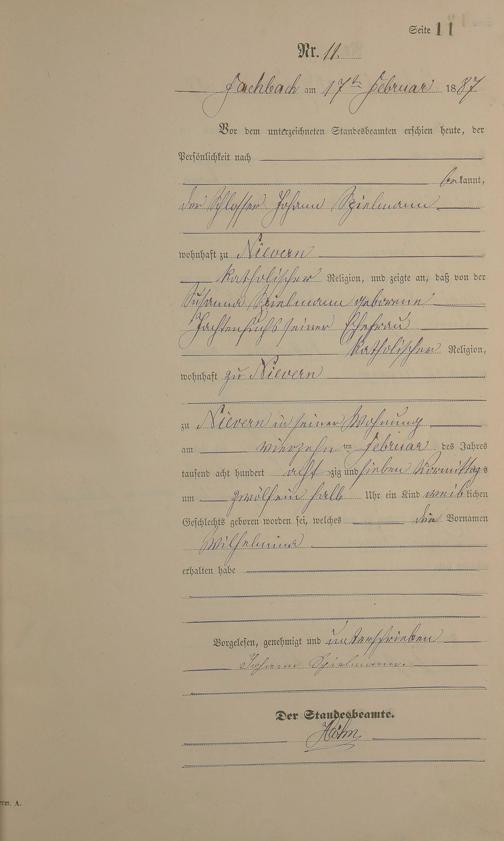 Seite 11
Nr. 11.
Fachbach am 17ten Februar 1887
Vor dem unterzeichneten Standesbeamten erschien heute, der
Persönlichkeit nach
bekannt,
der Schlosser Johann Spielmann
wohnhaft zu Nievern
katholischer Religion, und zeigte an, daß von der
Susanna Spielmann geborene
seiner Ehefrau
katholischer Religion,
wohnhaft zu Nievern
zu Nievern in seiner Wohnung
am vierzehn ten Februar des Jahres
tausend acht hundert acht zig und sieben Vormittags
um zwölfeinhalb Uhr ein Kind weiblichen
Geschlechts geboren worden sei, welches die Vornamen
Wilhelmina
erhalten habe
Vorgelesen, genehmigt und unterschrieben
Johann Spielmann.
Der Standesbeamte.
Höhn